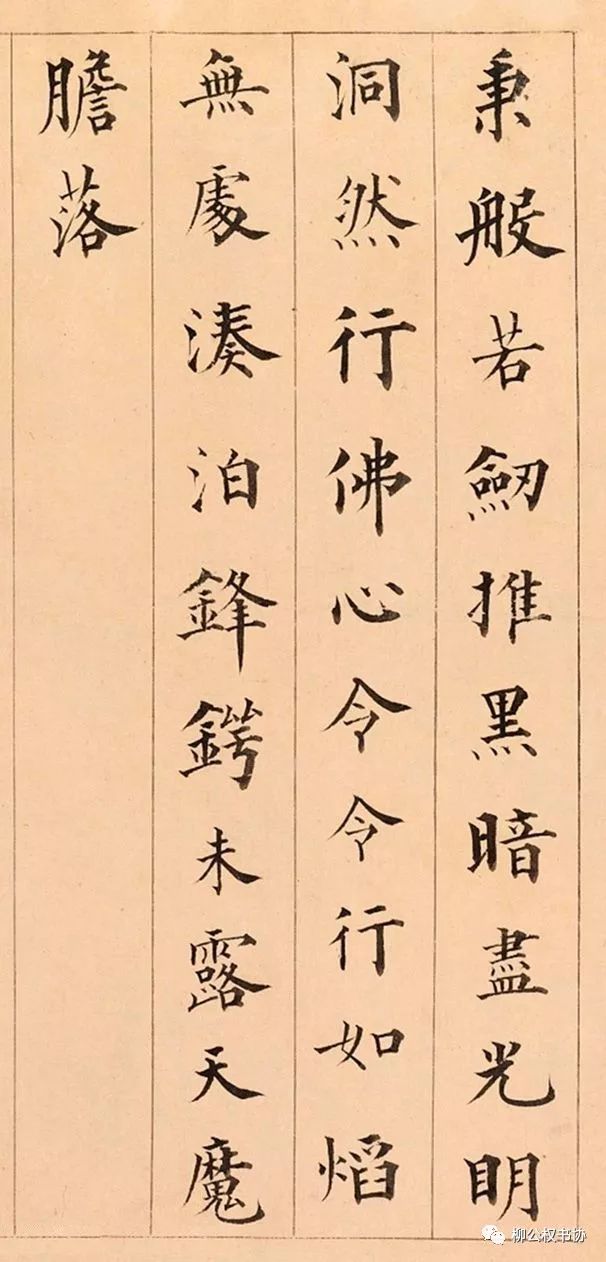 秉般若劒推黑暗盡光明
洞然行佛心令令行如熖
無處湊泊鋒鍔未露天魔
膽落
柳公权书协